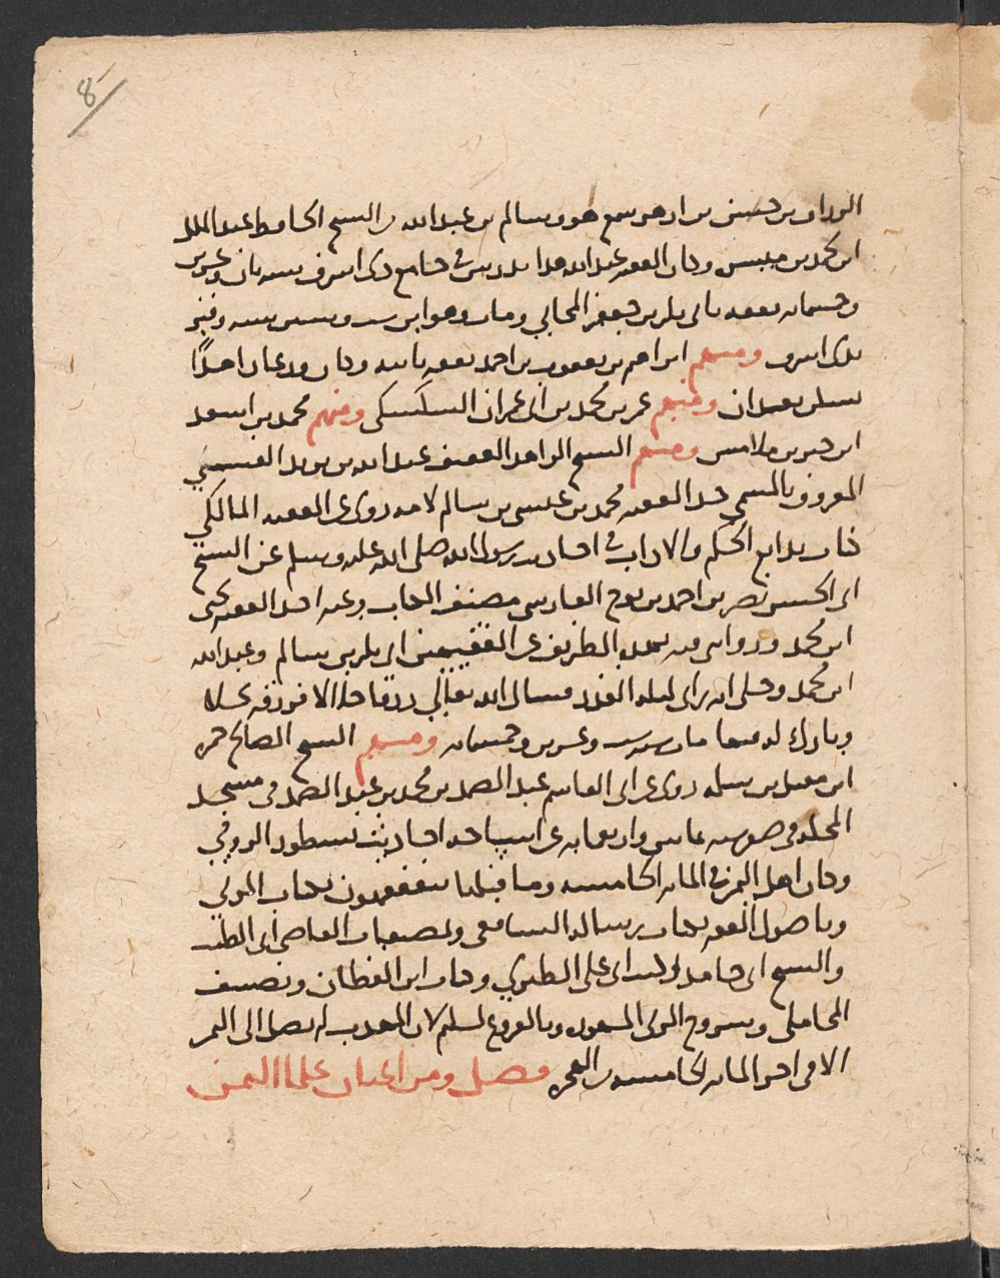 8
بن حسين بن ابرهيم سمع هو وسالم بن عبد الله من الشيخ الحافظ عبد الملك
ابن محمد بن ميسره وكان الفقيه عبد الله هذا يدرس في جامع ذي اشرق سنه ثمان وعشرين
وخمسمايه تفقه بابي بكر بن جعفر المحابي ومات وهو ابن ست وستين سنه وقبر
بذي اشرق ومنهم ابراهيم بن يعقوب بن احمد تفقه بابيه وكان ورعا زاهدا
ومنهم عمر بن محمد بن ابي عمران السكسكي ومنهم محمد بن اسعد
ابن خير بن ملامس ومنهم الشيخ الزاهد الفقيه عبد الله بن يزيد القسيمي
المعروف جد الفقيه محمد بن عيسى بن سالم لامه روى عن الفقيه المالكي
كتاب بدايع الحكم والاداب في احاديث رسول الله صلى الله عليه وسلم عن الشيخ
ابي الحسن نصر بن احمد بن نوح الفارسي مصنف الكتاب وعنه اخذ الفقيه يحيى
ابن محمد الطريق عن الفقيهين ابي بكر بن سالم وعبد الله
ابن محمد وحكي انه راى ليله القدر فسال الله تعالى رزقا حلالا فرزقه نحلا
وبارك له فيها مات سنه ست وعشرين وخمسمايه ومنهم الشيخ الصالح
ابن روى عن ابي القاسم عبد الصمد بن محمد بن عبد الصمد في مسجد
في سنه ثماني واربعمايه احاديث نسطور الرومي
وكان اهل اليمن في المايه الخامسه وما قبلها يتفقهون بكتاب المزني
وباصول الفقه بكتاب رسالة الشافعي وبمصنفات القاضي ابي الطيب
والشيخ ابي حامد وكتب ابي علي الطبري وكتاب ابن القطان وتصنيف
المحاملي وبشروح المزني المشهوره وبالفروع لسليم لان المهذب لم يصل الى اليمن
الا في اخر المايه الخامسه من الهجره فصل ومن اعيان علما اليمن